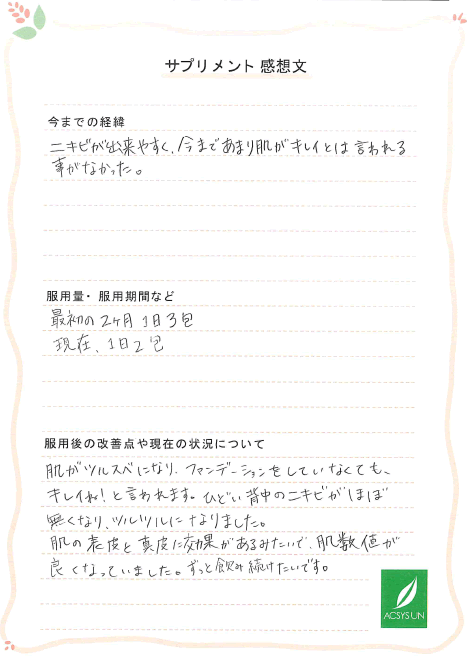 サプリメント 感想文
今までの経緯
ニキビが出来やすく、今まであまり肌がキレイとは言われる
事がなかった。
服用量・服用期間など
最初の2ヶ月 1日3包
現在、1日2包
服用後の改善点や現在の状況について
肌がツルスベになり、ファンデーションをしていなくても、
キレイね!と言われます。ひどい背中のニキビがほぼ
無くなり、ツルツルになりました。
肌の表皮と真皮に効果があるみたいで、肌数値が
良くなっていました。ずっと飲み続けたいです。
ACSYSUN